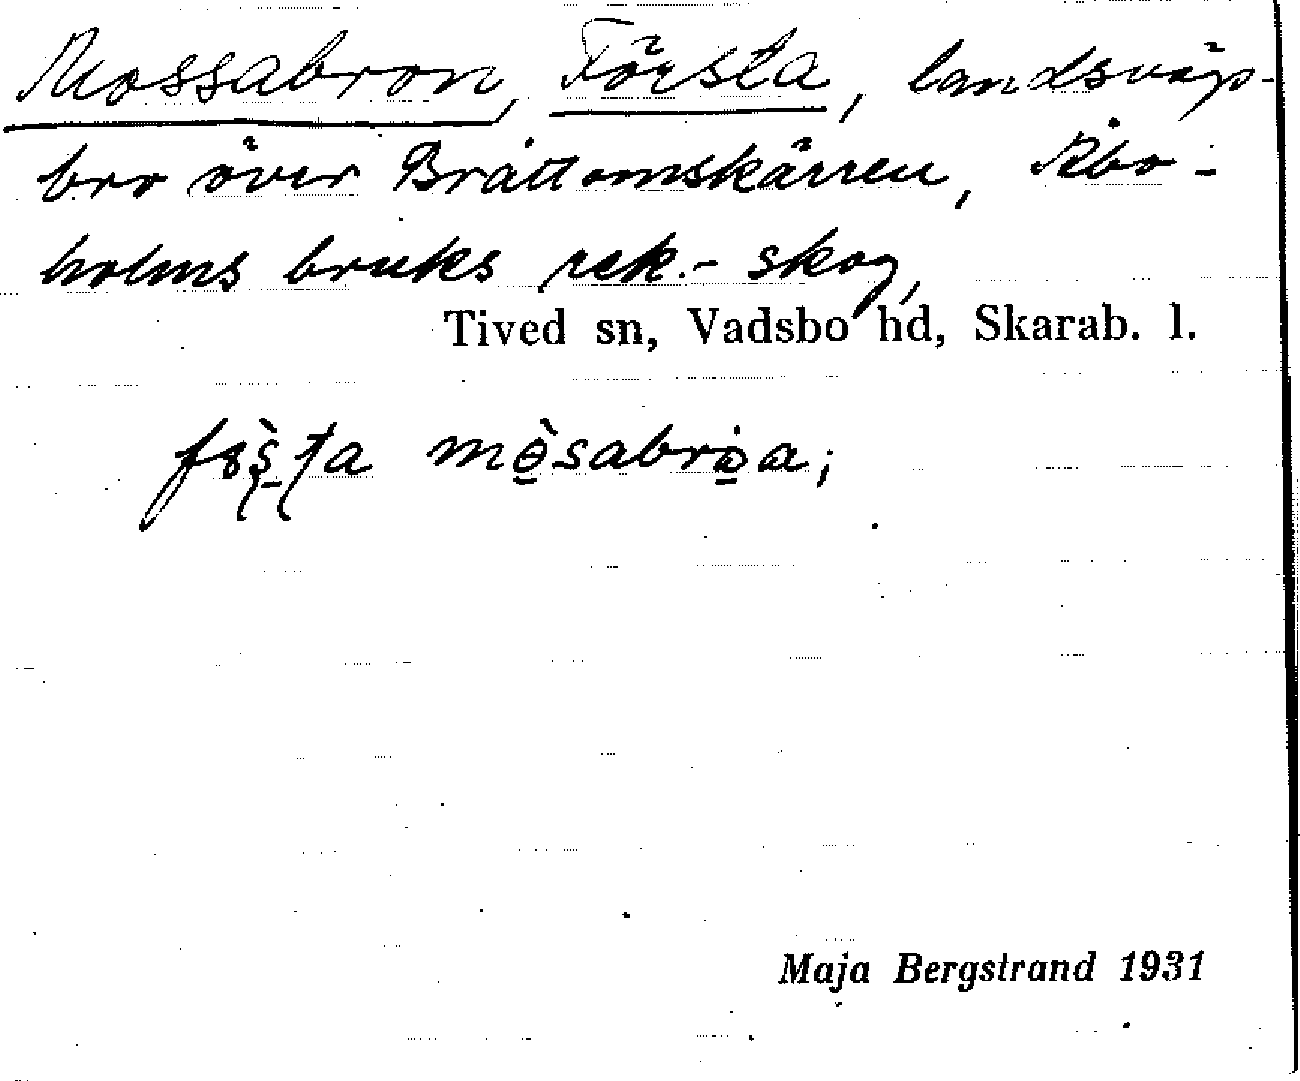 Mossabron, Första, landsvägs-
bro över Bråttomskärren, Åbo-
holms bruks rek.- skog,
Tived sn, Vadsbo hd, Skarab. l.
Maja Bergstrand 1931